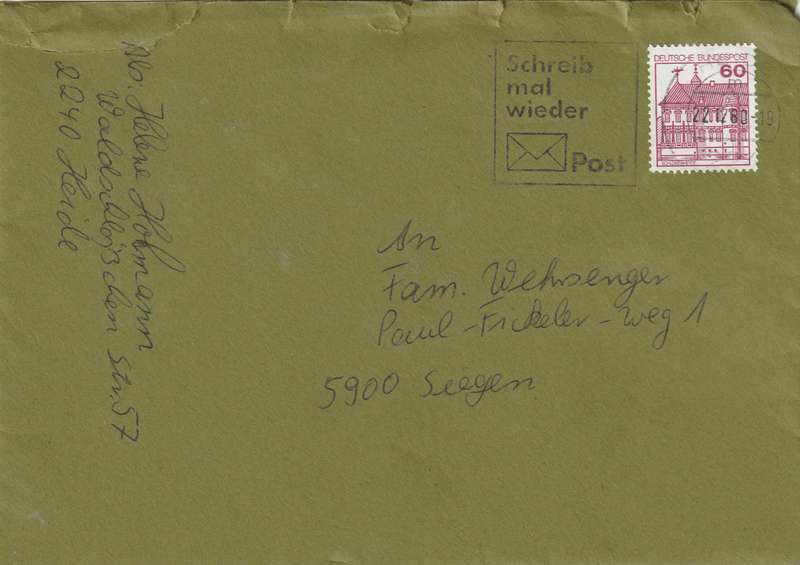 Schreib
mal
wieder
Post
DEUTSCHE BUNDESPOST
60
22.12.80-19
An
Fam. Wehrsenger
Paul-Fickeler-Weg 1
5900 Siegen
Abs: Helene Hofmann
Waldschlößchen Str. 57
2240 Heide